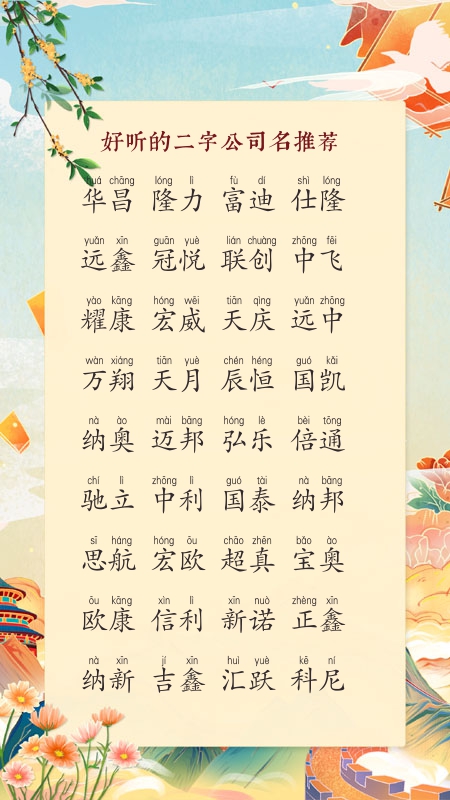 好听的二字公司名推荐
huá chāng lóng lì fù dí shì lóng
华昌 隆力 富迪 仕隆
yuǎn xīn guān yuè lián chuàng zhōng fēi
远鑫 冠悦 联创 中飞
yào kāng hóng wēi tiān qìng yuǎn zhōng
耀康 宏威 天庆 远中
wàn xiáng tiān yuè chén héng guó kǎi
万翔 天月 辰恒 国凯
nà ào mài bāng hóng lè bèi tōng
纳奥 迈邦 弘乐 倍通
chí lì zhōng lì guó tài nà bāng
驰立 中利 国泰 纳邦
sī háng hóng ōu chāo zhēn bǎo ào
思航 宏欧 超真 宝奥
ōu kāng xìn lì xīn nuò zhèng xīn
欧康 信利 新诺 正鑫
nà xīn jí xīn huì yuè kē ní
纳新 吉鑫 汇跃 科尼